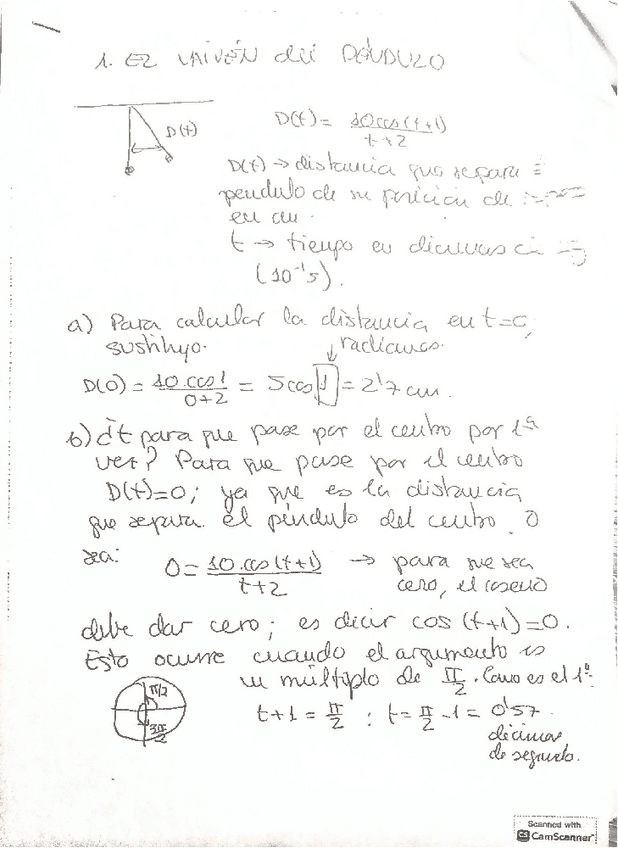 1. EL VAIVÉN del PÉNDULO
D(t)
D(t) = 10 cos(t+1) / t+2
D(t) → distancia que separa
péndulo de su posición de
en cm.
t → tiempo en décimas
(10⁻¹s).
a) Para calcular la distancia en t=0,
sustituyo.
radianes.
D(0) = 10.cos1 / 0+2 = 5cos 1 = 2'7 cm.
b) ¿t para que pase por el centro por 1ª
vez? Para que pase por el centro
D(t)=0; ya que es la distancia
que separa el péndulo del centro. O
sea:
0 = 10.cos(t+1) / t+2 → para que sea
cero, el coseno
debe dar cero; es decir cos(t+1)=0.
Esto ocurre cuando el argumento es
un múltiplo de π/2. Como es el 1º:
π/2
3π/2
t+1 = π/2 : t = π/2 - 1 = 0'57
décimas
de segundo.
Scanned with
CS CamScanner